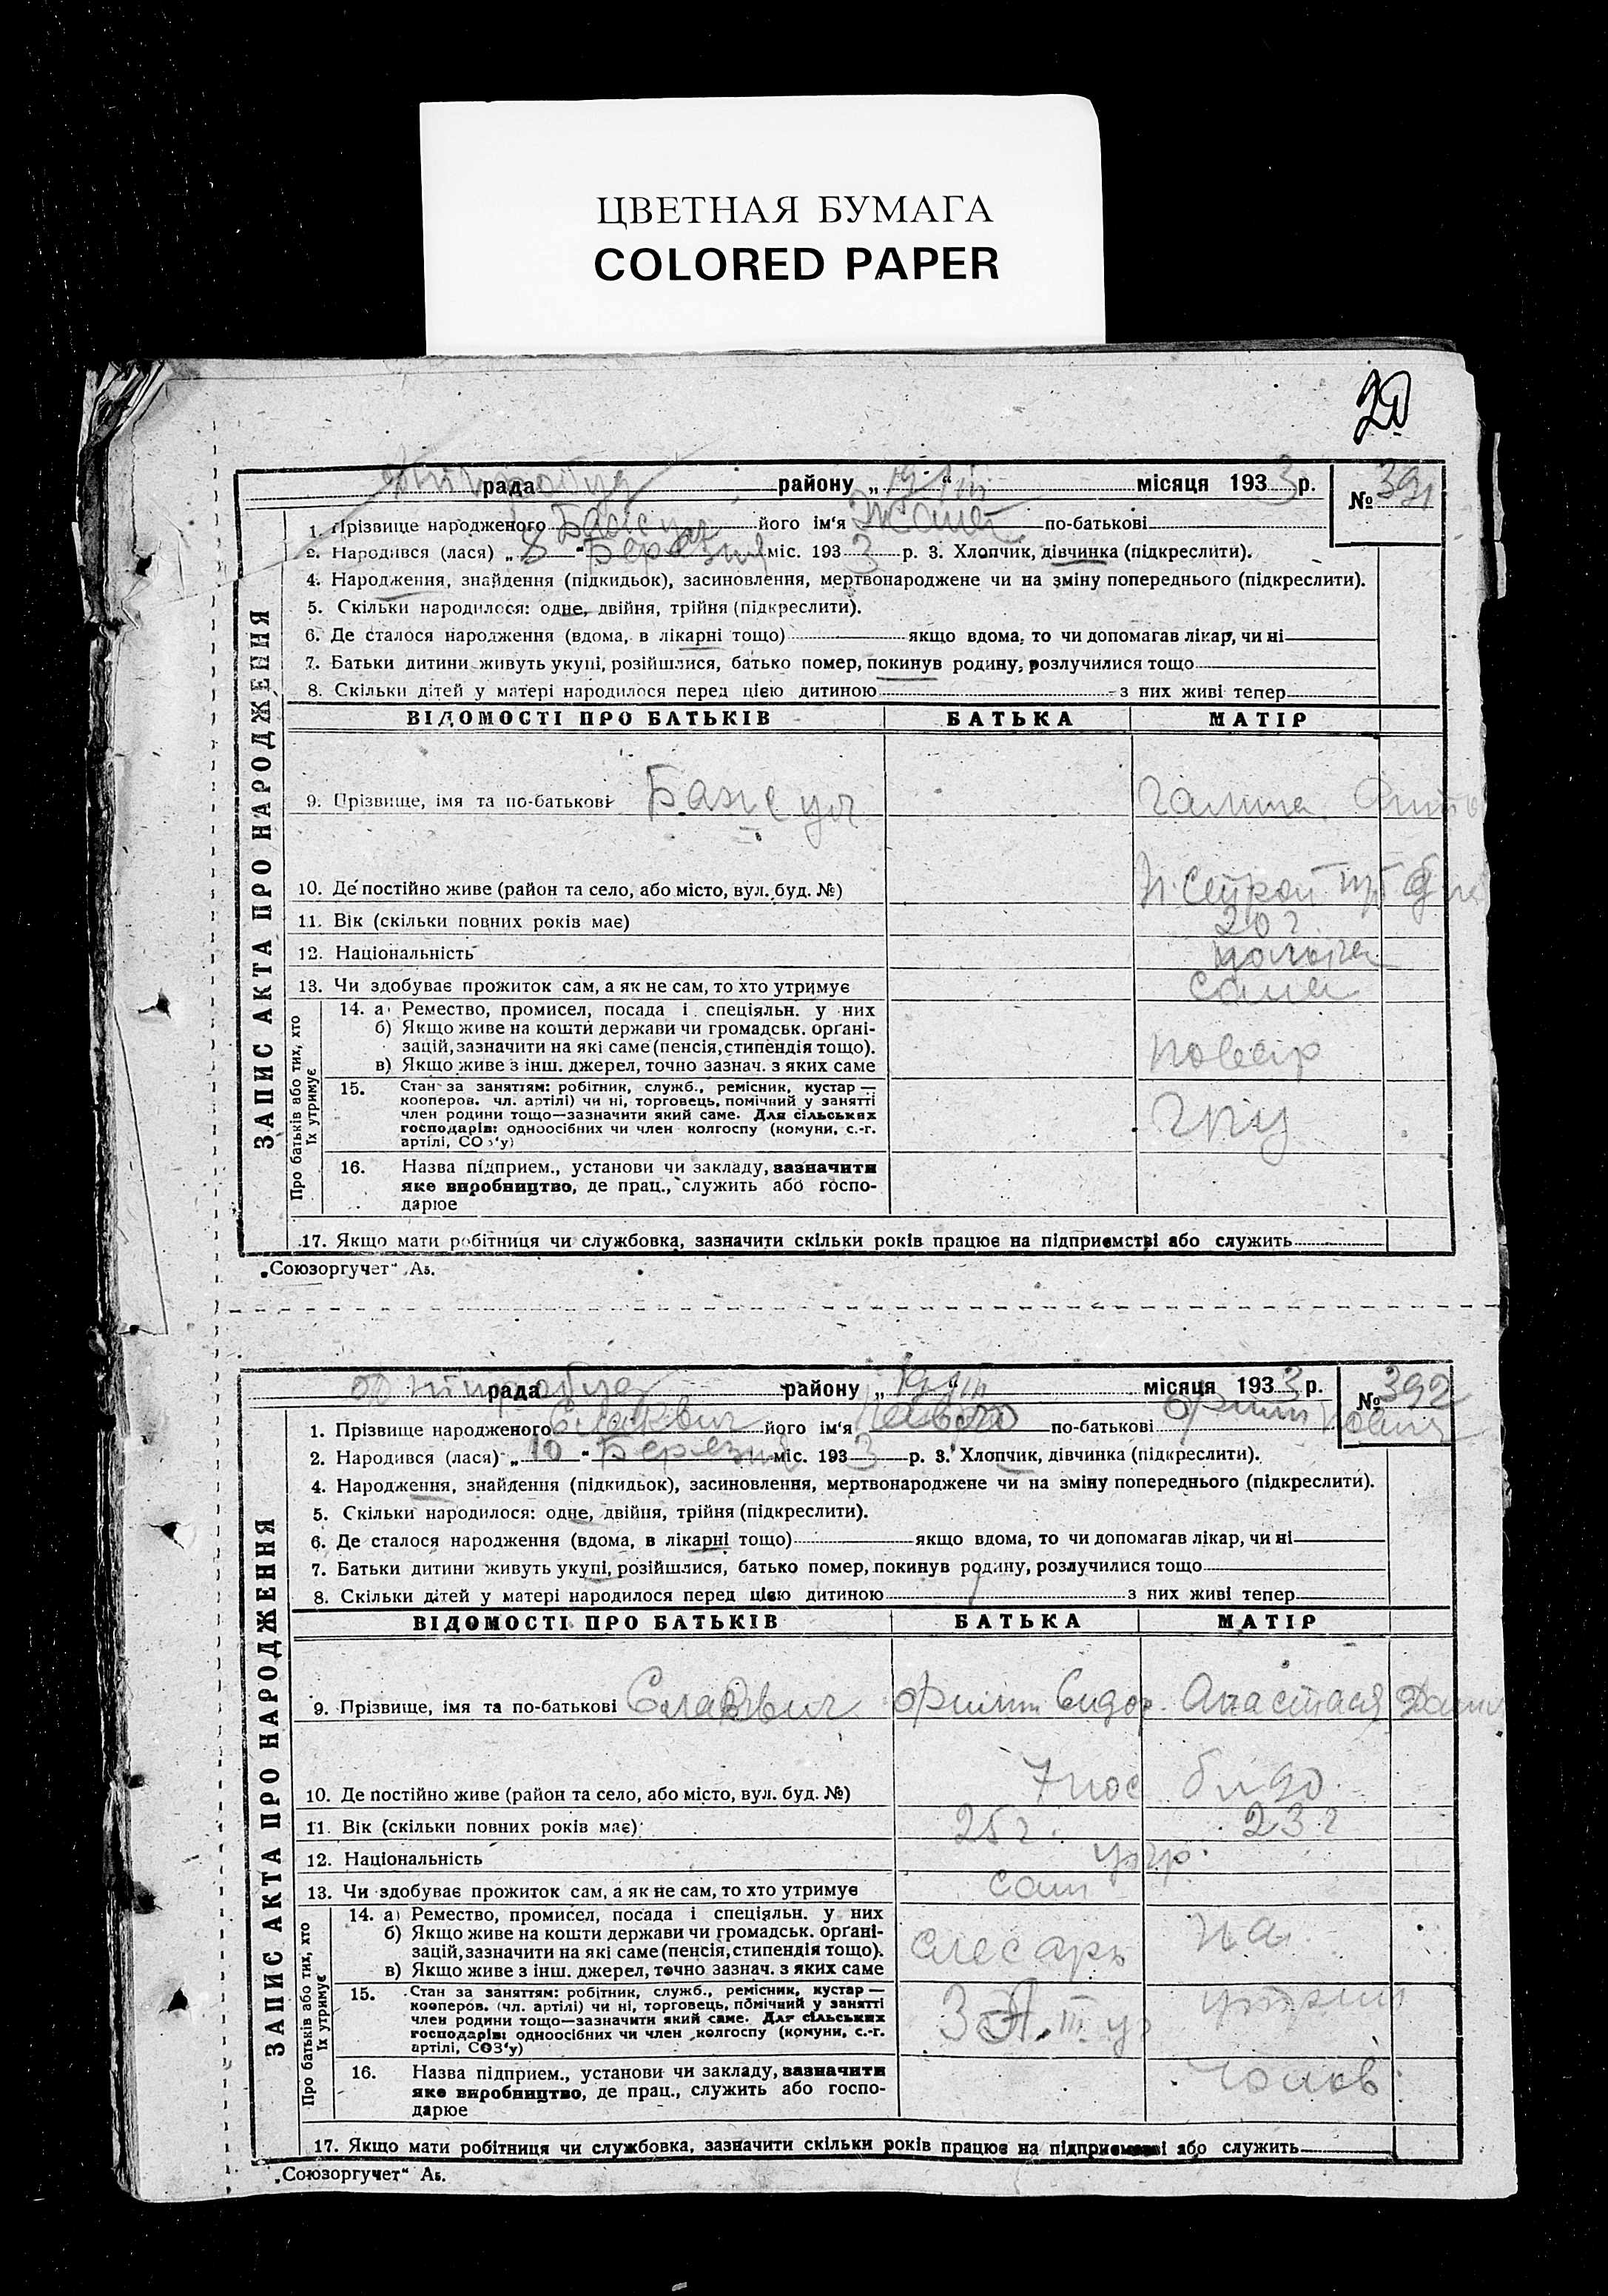 ЦВЕТНАЯ БУМАГА
COLORED PAPER
20
рада району „19/III“ місяця 1933 р. № 391
1. Прізвище народженого його ім‘я Жанет по-батькові
2. Народився (лася) „8“ Березня міс. 193 3 р. 3. Хлопчик, дівчинка (підкреслити).
4. Народження, знайдення (підкидьок), засиновлення, мертвонароджене чи на зміну попереднього (підкреслити).
5. Скільки народилося: одне, двійня, трійня (підкреслити).
6. Де сталося народження (вдома, в лікарні тощо) якщо вдома, то чи допомагав лікар, чи ні
7. Батьки дитини живуть укупі, розійшлися, батько помер, покинув родину, розлучилися тощо
8. Скільки дітей у матері народилося перед цією дитиною з них живі тепер
ЗАПИС АКТА ПРО НАРОДЖЕННЯ
ВІДОМОСТІ ПРО БАТЬКІВ БАТЬКА МАТІР
9. Прізвище, імя та по-батькові Галина
10. Де постійно живе (район та село, або місто, вул. буд. №)
11. Вік (скільки повних років має) 20 г.
12. Національність
13. Чи здобуває прожиток сам, а як не сам, то хто утримує сама
Про батьків або тих, хто їх утримує
14. а) Ремество, промисел, посада і спеціяльн. у них
б) Якщо живе на кошти держави чи громадськ. орґані-
зацій, зазначити на які саме (пенсія, стипендія тощо). повар
в) Якщо живе з інш. джерел, точно зазнач. з яких саме
15. Стан за заняттям: робітник, служб., ремісник, кустар —
кооперов. чл. артілі) чи ні, торговець, помічний у занятті
член родини тощо—зазначити який саме. Для сільських
господарів: одноосібних чи член колгоспу (комуни, с.-г.
артілі, СОЗ‘у)
16. Назва підприєм., установи чи закладу, зазначити
яке виробництво, де прац., служить або госпо-
дарює
17. Якщо мати робітниця чи службовка, зазначити скільки років працює на підприємстві або служить
„Союзоргучет“ А5.
рада району „19/III“ місяця 1933 р. № 392
1. Прізвище народженого його ім‘я по-батькові
2. Народився (лася) „10“ Березня міс. 193 3 р. 3. Хлопчик, дівчинка (підкреслити).
4. Народження, знайдення (підкидьок), засиновлення, мертвонароджене чи на зміну попереднього (підкреслити).
5. Скільки народилося: одне, двійня, трійня (підкреслити).
6. Де сталося народження (вдома, в лікарні тощо) якщо вдома, то чи допомагав лікар, чи ні
7. Батьки дитини живуть укупі, розійшлися, батько помер, покинув родину, розлучилися тощо
8. Скільки дітей у матері народилося перед цією дитиною з них живі тепер
ЗАПИС АКТА ПРО НАРОДЖЕННЯ
ВІДОМОСТІ ПРО БАТЬКІВ БАТЬКА МАТІР
9. Прізвище, імя та по-батькові Сидор. Анастася
10. Де постійно живе (район та село, або місто, вул. буд. №) 7 пос
11. Вік (скільки повних років має) 25 г. 23 г
12. Національність укр.
13. Чи здобуває прожиток сам, а як не сам, то хто утримує сам
Про батьків або тих, хто їх утримує
14. а) Ремество, промисел, посада і спеціяльн. у них
б) Якщо живе на кошти держави чи громадськ. орґані- слесарь на
зацій, зазначити на які саме (пенсія, стипендія тощо).
в) Якщо живе з інш. джерел, точно зазнач. з яких саме
15. Стан за заняттям: робітник, служб., ремісник, кустар — утрим
кооперов. (чл. артілі) чи ні, торговець, помічний у занятті
член родини тощо—зазначити який саме. Для сільських
господарів: одноосібних чи член колгоспу (комуни, с.-г.
артілі, СОЗ‘у)
16. Назва підприєм., установи чи закладу, зазначити чолов
яке виробництво, де прац., служить або госпо-
дарює
17. Якщо мати робітниця чи службовка, зазначити скільки років працює на підприємстві або служить
„Союзоргучет“ А5.